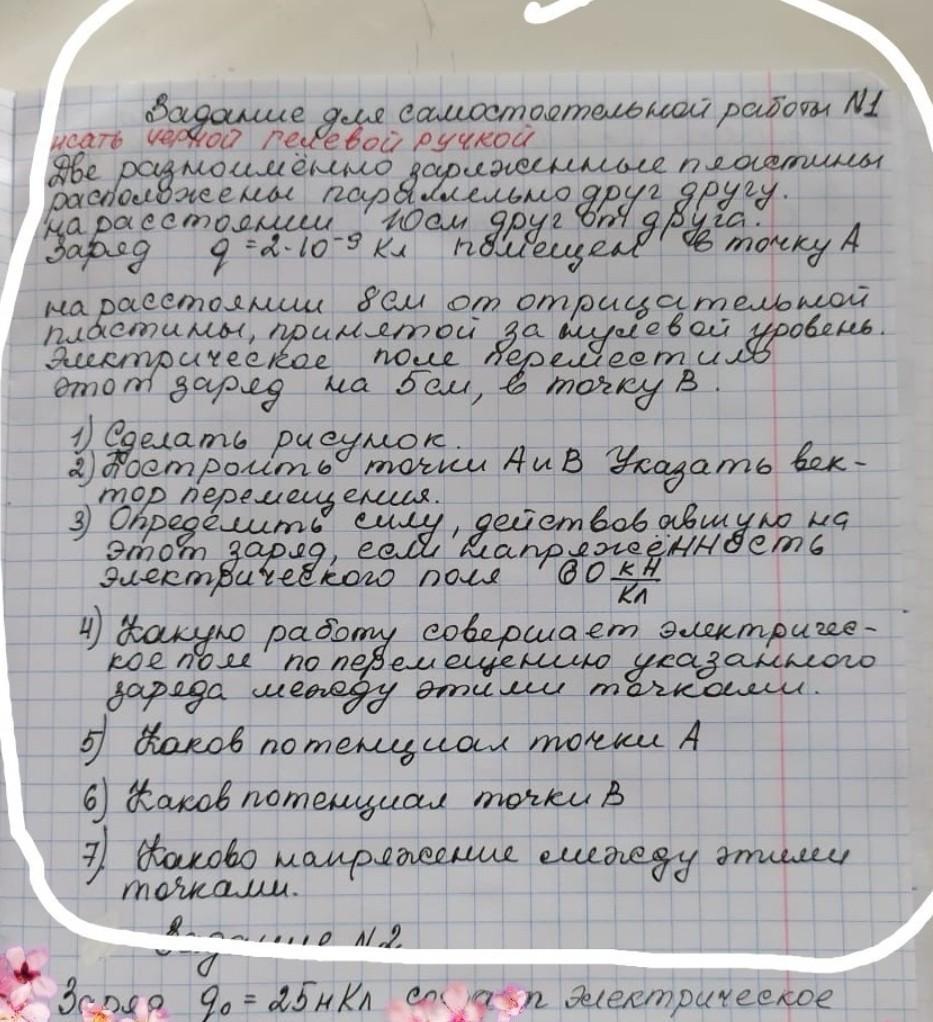 Задание для самостоятельной работы N1
исать черной гелевой ручкой
Две разноимённо заряженные пластины
расположены параллельно друг другу.
на расстоянии 10см друг от друга.
Заряд q = 2·10⁻⁹ Кл помещен в точку А
на расстоянии 8см от отрицательной
пластины, принятой за нулевой уровень.
Электрическое поле переместило
этот заряд на 5см, в точку В.
1) Сделать рисунок.
2) Построить точки А и В Указать век-
тор перемещения.
3) Определить силу, действовавшую на
этот заряд, если напряжённость
электрического поля 60 кН/Кл
4) Какую работу совершает электричес-
кое поле по перемещению указанного
заряда между этими точками.
5) Каков потенциал точки А
6) Каков потенциал точки В
7) Каково напряжение между этими
точками.
Задание N2
Заряд q₀ = 25нКл электрическое